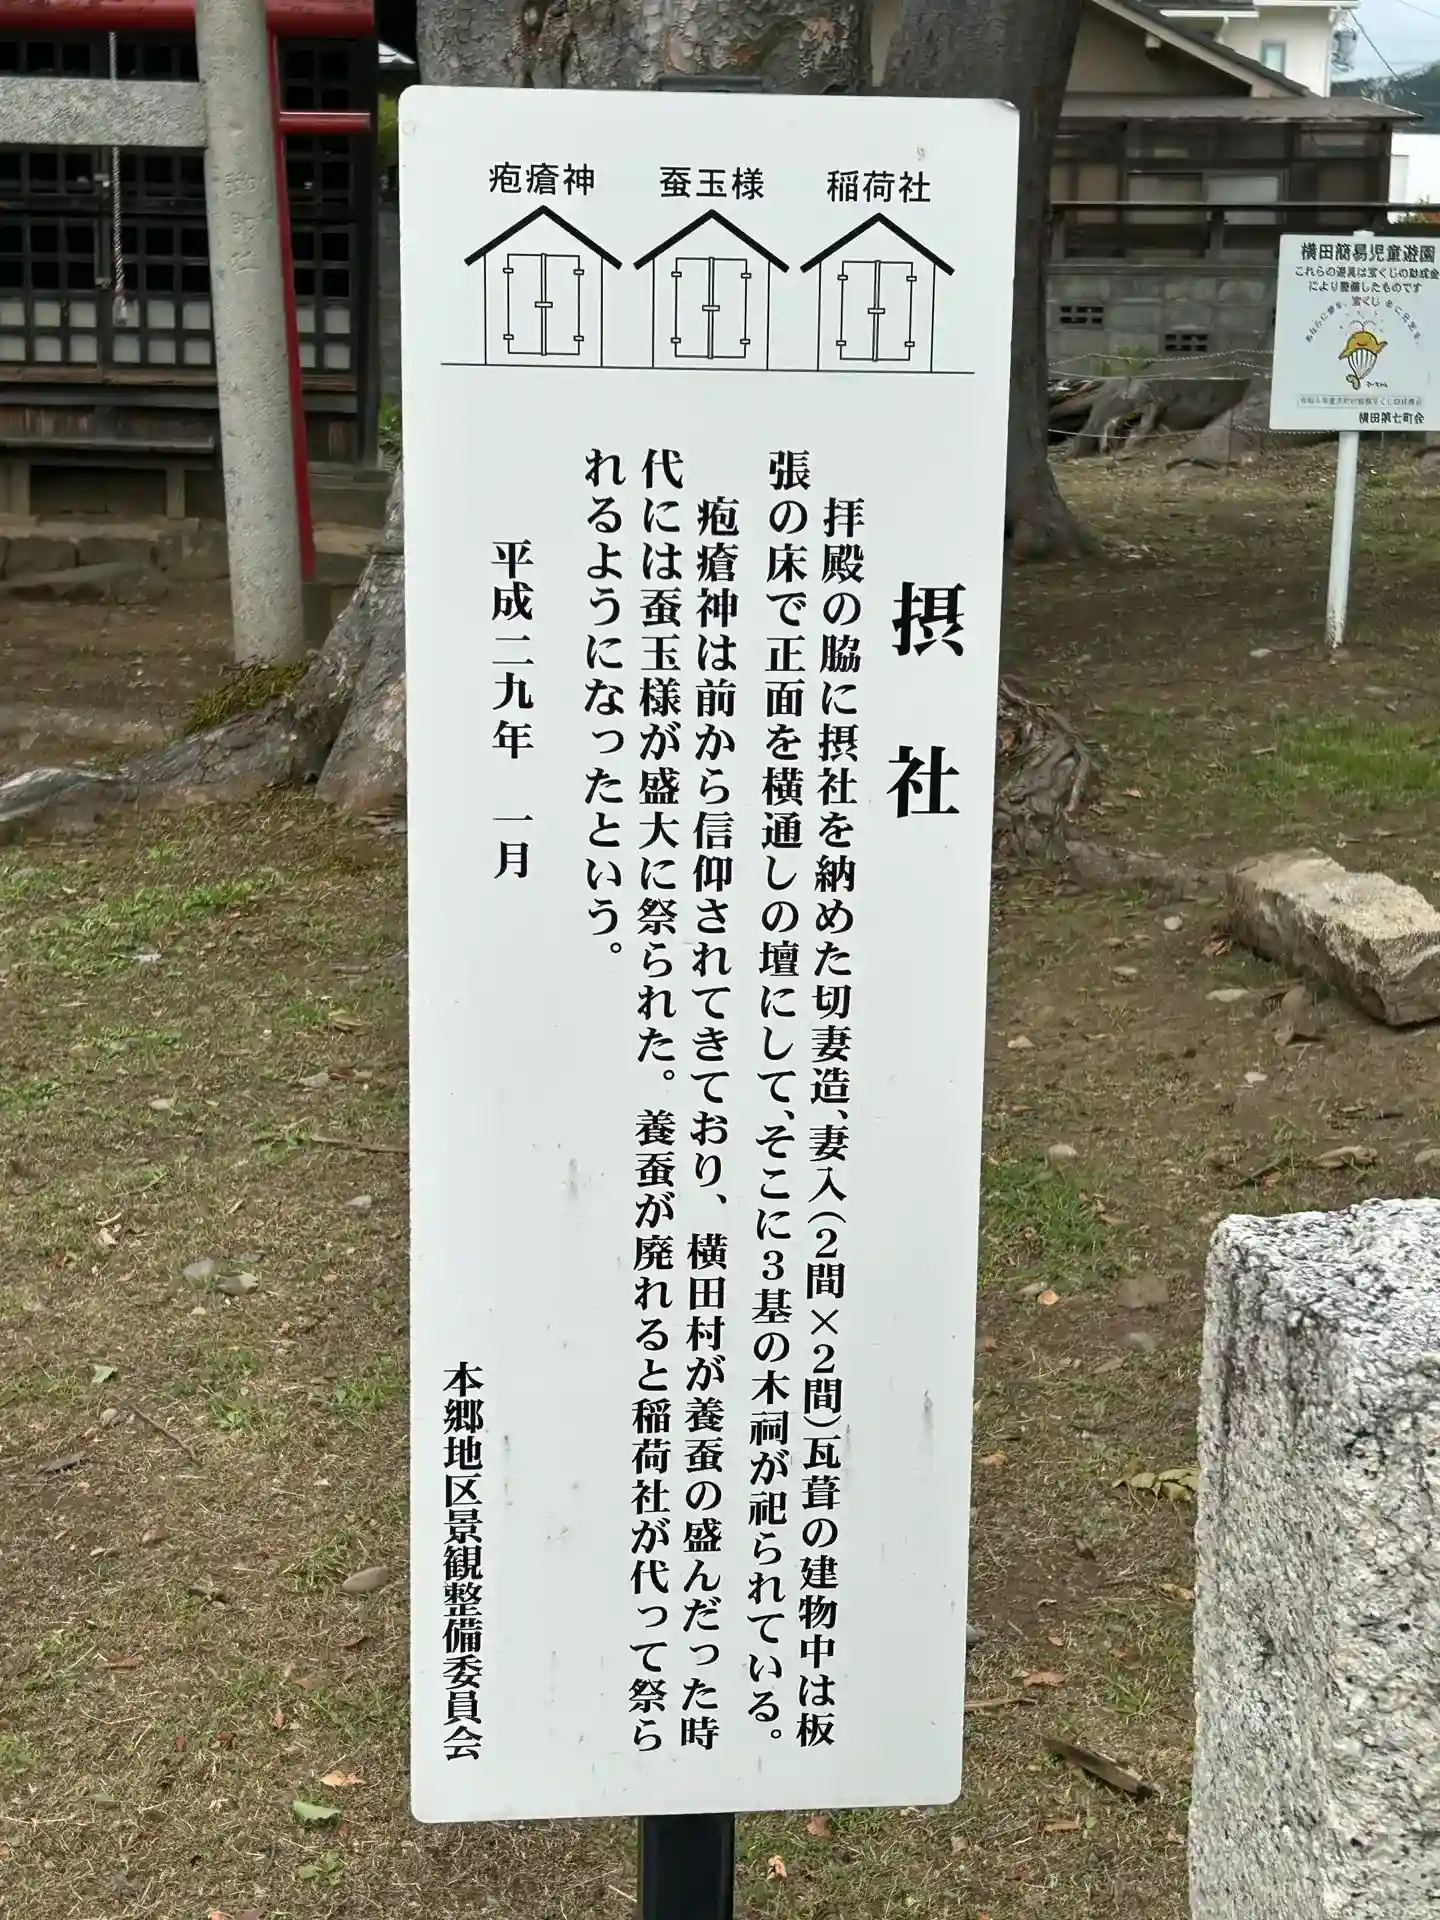 疱瘡神
蚕玉様
稲荷社
摂社
拝殿の脇に摂社を納めた切妻造、妻入(2間×2間)瓦葺の建物中は板
張の床で正面を横通しの壇にして、そこに3基の木祠が祀られている。
疱瘡神は前から信仰されてきており、横田村が養蚕の盛んだった時
代には蚕玉様が盛大に祭られた。養蚕が廃れると稲荷社が代って祭ら
れるようになったという。
平成二九年 一月
本郷地区景観整備委員会
横田簡易児童遊園
これらの遊具は宝くじの助成金
により整備したものです
宝くじ
横田第七町会